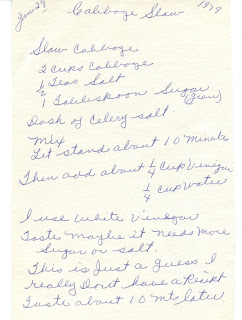 Jan 29 Cabbage Slaw 1979
Slaw Cabbage
2 cups Cabbage
1/2 Teas Salt
1 Tablespoon Sugar
Dash of Celery salt
Mix
Let stand about 10 Minute
Then add about 1/4 Cup Vinegar
1/4 cup Water
I use White Vinegar
Taste Maybe it needs More
Sugar or Salt.
This is Just a guess I
really Don't have a
Taste about 10 Mts later.